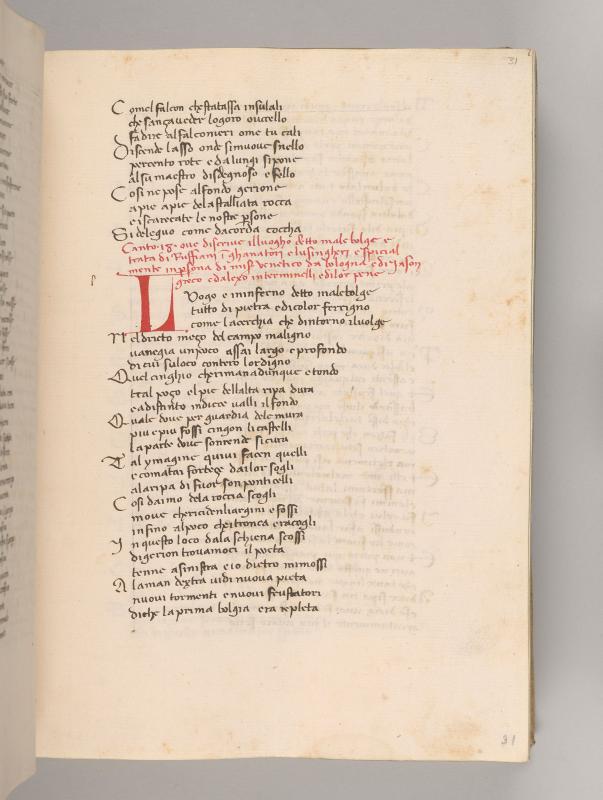 31
Comel falcon chestatassa insulali
che sança veder logoro oucello
fa dire al falconieri ome tu cali
Discende lasso onde simuove snello
per cento rote e da lungi sipone
al su maestro disdegnoso e fello
Cosi ne pose al fondo gerione
a pie apie dela stalliata rocca
e iscarecate le nostre psone
Si deleguo come da corda coccha
Canto .18. oue discriue illuogho detto male bolge e
trata di Ruffiani ighanatori e lusingheri e spicial
mente in psona di misr venetico da bologna e di iason
greco e dalexo interminelli e di lor pene
Luogo e in inferno detto malebolge
tutto di pietra e di color ferrigno
come la cerchia che dintorno iluolge
Nel dricto mego del campo maligno
uanegia un poco assai largo e profondo
di cui suloco contero lordigno
Quel cinghio cherimane adunque e tondo
tral poço el pie dellalta ripa dura
e a distinto indiece ualli il fondo
Quale doue per guardia dele mura
piu e piu fossi cingon li castelli
la parte doue sonrende sicura
Tal ymagine quiui facen quelli
e come a tai forteçe da ilor sogli
ala ripa di fuor son ponticelli
Cosi da imo dela roccia scogli
moue che ricidien liargini e fossi
infino al poço chei tronca e racogli
In questo loco dala schiena scossi
di gerion trouamoci il poeta
tenne a sinistra e io dietro mi mossi
Ala man dextra uidi nuoua pieta
nuoui tormenti e nuoui frustatori
di che la prima bolgia era repleta
31